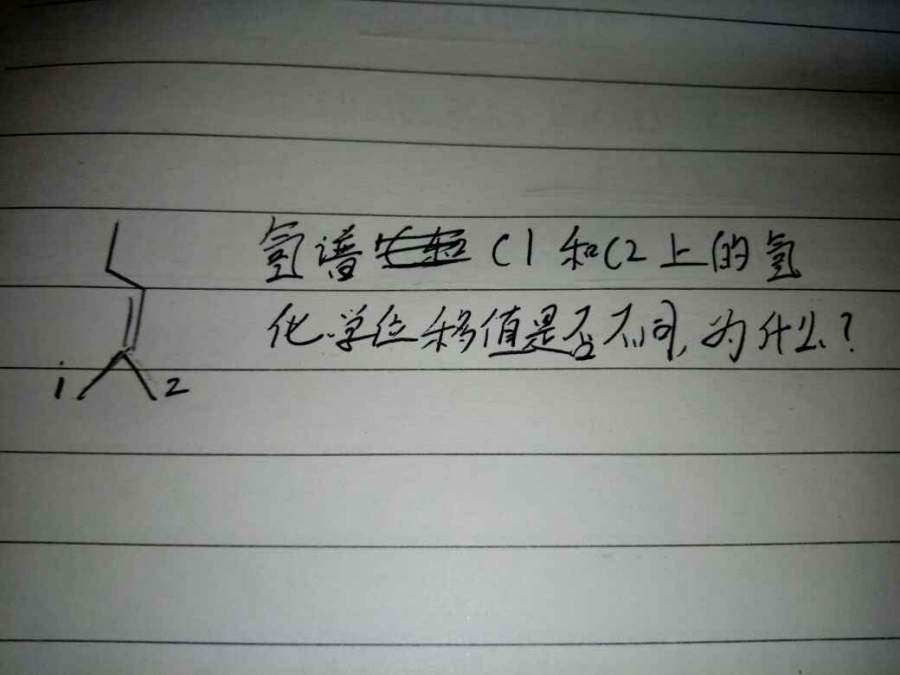 氢谱 C1和C2上的氢
化学位移值是否不同,为什么?
1 2